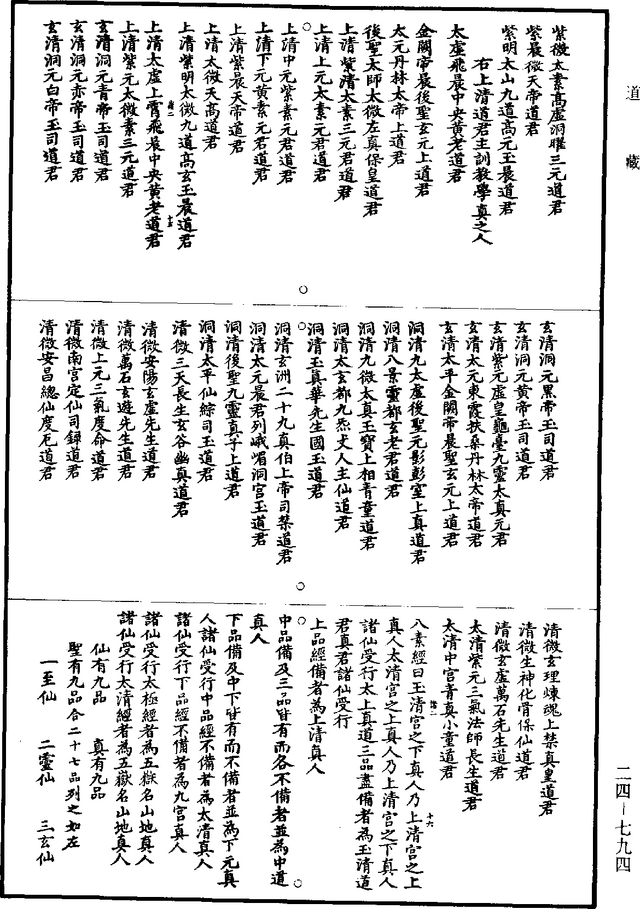 道藏
紫微太素高虛洞曜三元道君
紫晨微天帝道君
紫明太山九道高元玉晨道君
右上清道君主訓教學真之人
太虛飛晨中央黃老道君
金闕帝晨後聖玄元上道君
太元丹林太帝上道君
後聖太師太微左真保皇道君
上清紫清太素三元君道君
上清上元太素元君道君
上清中元紫素元君道君
上清下元黃素元君道君
上清紫晨天帝道君
上清太微天高道君
上清紫明太微九道高玄玉晨道君
上清太虛上霄飛晨中央黃老道君
上清紫元太微素三元道君
玄清洞元青帝玉司道君
玄清洞元赤帝玉司道君
玄清洞元白帝玉司道君
玄清洞元黑帝玉司道君
玄清洞元黃帝玉司道君
玄清紫元虛皇龜臺九靈太真元君
玄清太元東霞扶桑丹林太帝道君
玄清太平金闕帝晨聖玄元上道君
洞清九太虛後聖元影彭室上真道君
洞清八景靈都玄老君道君
洞清九微太真玉寶上相青童道君
洞清太玄都九炁丈人主仙道君
洞清玉真華先生國玉道君
洞清玄洲二十九真伯上帝司禁道君
洞清太元晨君列峨嵋洞宮玉道君
洞清後聖九靈真子上道君
洞清太平仙綜司玉道君
清微三天長生玄谷幽真道君
清微安陽玄虛先生道君
清微萬石玄遊先生道君
清微上元三氣度命道君
清微南宮定仙司錄道君
清微安昌總仙度厄道君
清微玄理煉魂上禁真皇道君
清微生神化骨保仙道君
清微玄虛萬石先生道君
太清紫元三氣法師長生道君
太清中宮青真小童道君
十六
八素經曰玉清宮之下真人乃上清宮之上
真人太清宮之上真人乃上清宮之下真人
諸仙受行太上真道三品盡備者為玉清道
君真君諸仙受行
上品經備者為上清真人
中品備及三品皆有而各不備者並為中道
真人
下品備及中下皆有而不備者並為下元真
人諸仙受行中品經不備者為太清真人
諸仙受行下品經不備者為九宮真人
諸仙受行太極經者為五嶽名山地真人
諸仙受行太清經者為五嶽名山地真人
仙有九品　真有九品
聖有九品合二十七品列之如左
一至仙　二靈仙　三玄仙
二四－七九四